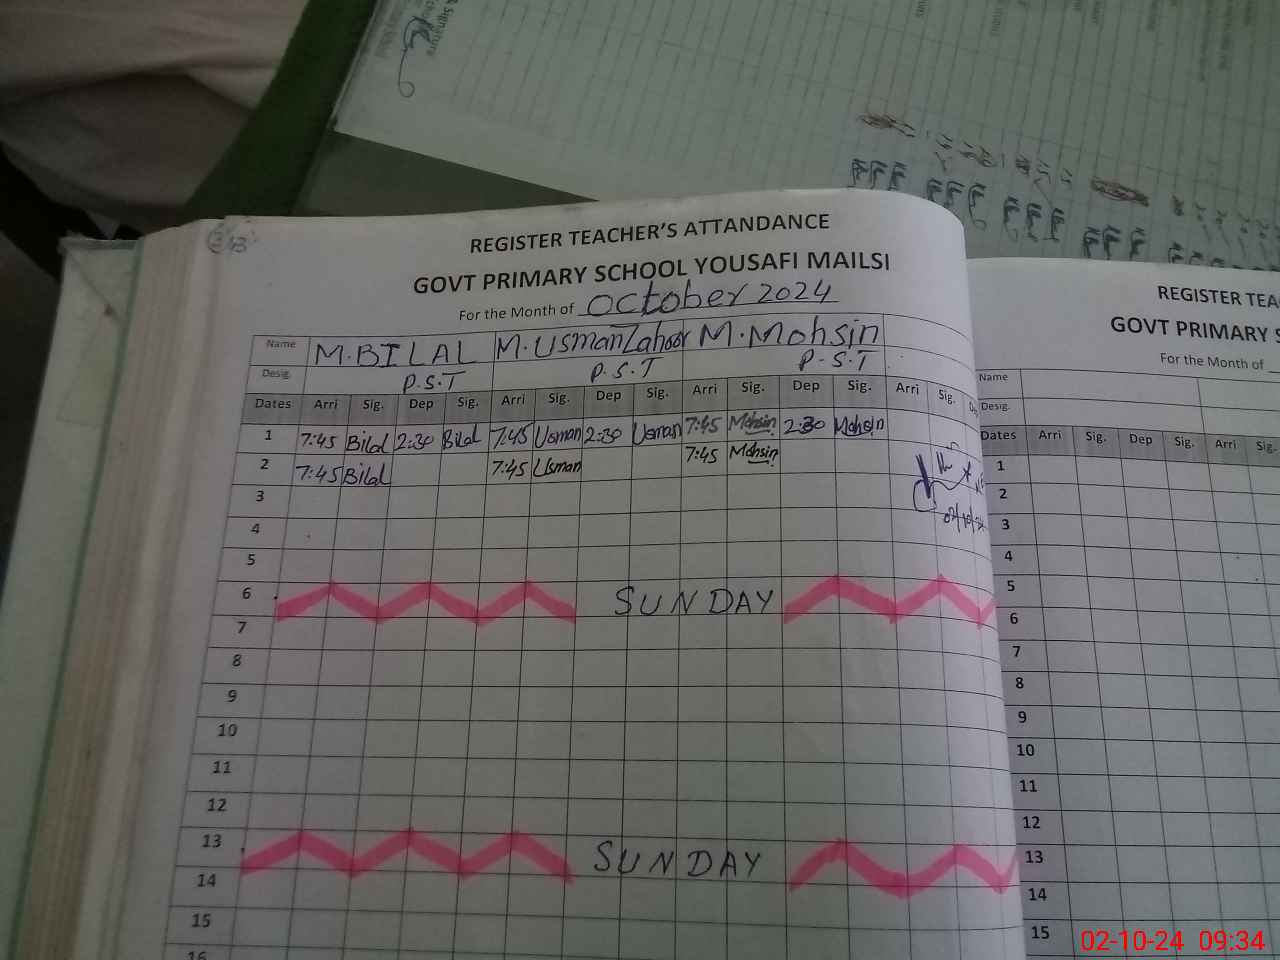 REGISTER TEACHER'S ATTANDANCE
GOVT PRIMARY SCHOOL YOUSAFI MAILSI
For the Month of October 2024
Name M.BILAL M.Usman Zahoor M.Mohsin
Desig. P.S.T P.S.T P.S.T
Dates Arri Sig. Dep Sig. Arri Sig. Dep Sig. Arri Sig. Dep Sig. Arri Sig. Dep
1 7:45 Bilal 2:30 Bilal 7:45 Usman 2:30 Usman 7:45 Mohsin 2:30 Mohsin
2 7:45 Bilal 7:45 Usman 7:45 Mohsin
3
4
5
6 SUNDAY
7
8
9
10
11
12
13 SUNDAY
14
15
16
REGISTER TEA
GOVT PRIMARY S
For the Month of
Name
Desig.
Dates Arri Sig. Dep Sig. Arri Sig.
1
2
3
4
5
6
7
8
9
10
11
12
13
14
15
02-10-24 09:34